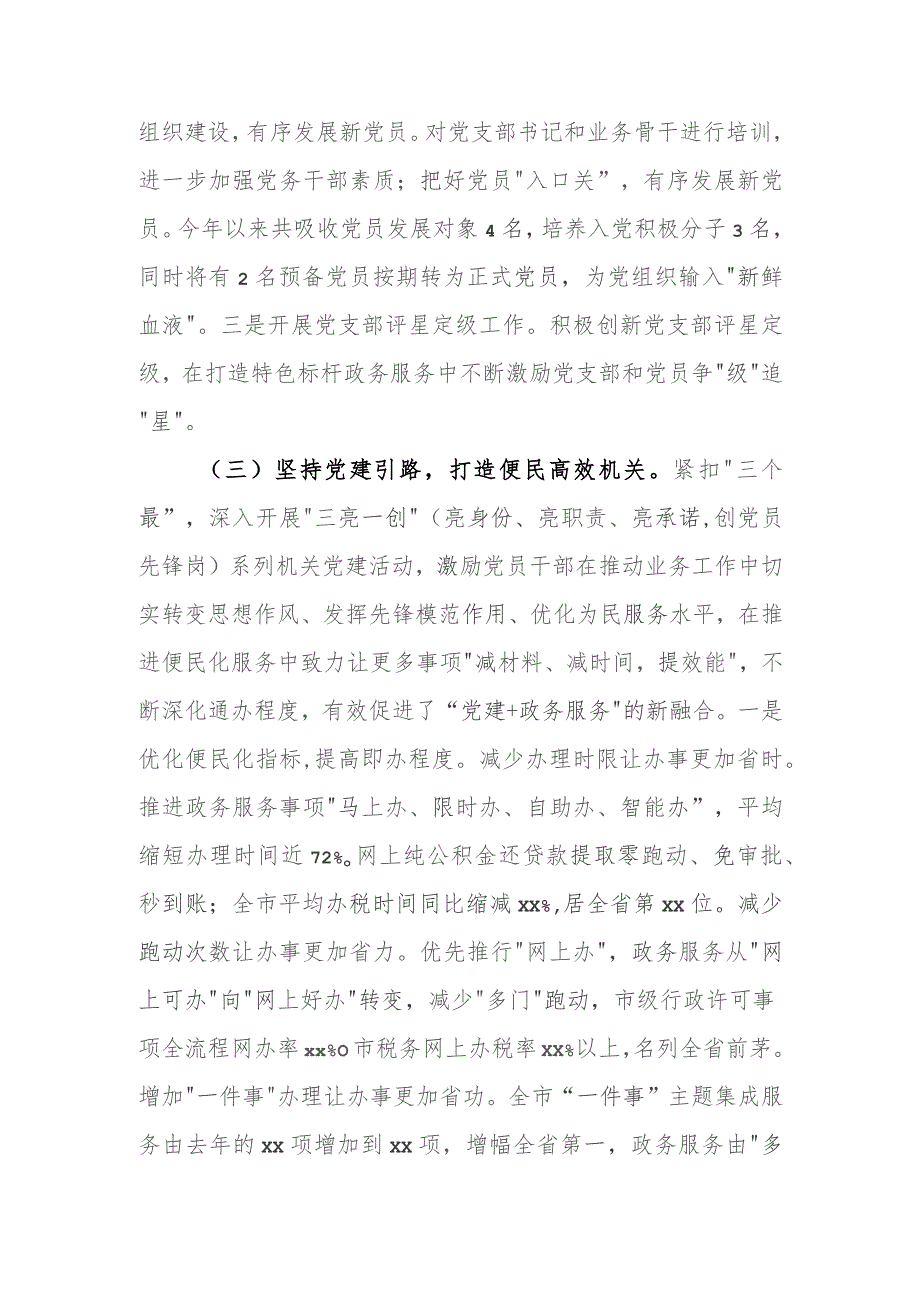 组织建设，有序发展新党员。对党支部书记和业务骨干进行培训，
进一步加强党务干部素质；把好党员"入口关”，有序发展新党
员。今年以来共吸收党员发展对象 4 名，培养入党积极分子 3 名，
同时将有 2 名预备党员按期转为正式党员，为党组织输入"新鲜
血液"。三是开展党支部评星定级工作。积极创新党支部评星定
级，在打造特色标杆政务服务中不断激励党支部和党员争"级"追
"星"。
（三）坚持党建引路，打造便民高效机关。紧扣"三个
最”，深入开展"三亮一创"（亮身份、亮职责、亮承诺,创党员
先锋岗）系列机关党建活动，激励党员干部在推动业务工作中切
实转变思想作风、发挥先锋模范作用、优化为民服务水平，在推
进便民化服务中致力让更多事项"减材料、减时间，提效能"，不
断深化通办程度，有效促进了“党建+政务服务"的新融合。一是
优化便民化指标,提高即办程度。减少办理时限让办事更加省时。
推进政务服务事项"马上办、限时办、自助办、智能办”，平均
缩短办理时间近 72%。网上纯公积金还贷款提取零跑动、免审批、
秒到账；全市平均办税时间同比缩减 xx%,居全省第 xx 位。减少
跑动次数让办事更加省力。优先推行"网上办"，政务服务从"网
上可办"向"网上好办"转变，减少"多门"跑动，市级行政许可事
项全流程网办率 xx%O 市税务网上办税率 XX%以上,名列全省前茅。
增加"一件事"办理让办事更加省功。全市“一件事”主题集成服
务由去年的 xx 项增加到 xx 项，增幅全省第一，政务服务由"多